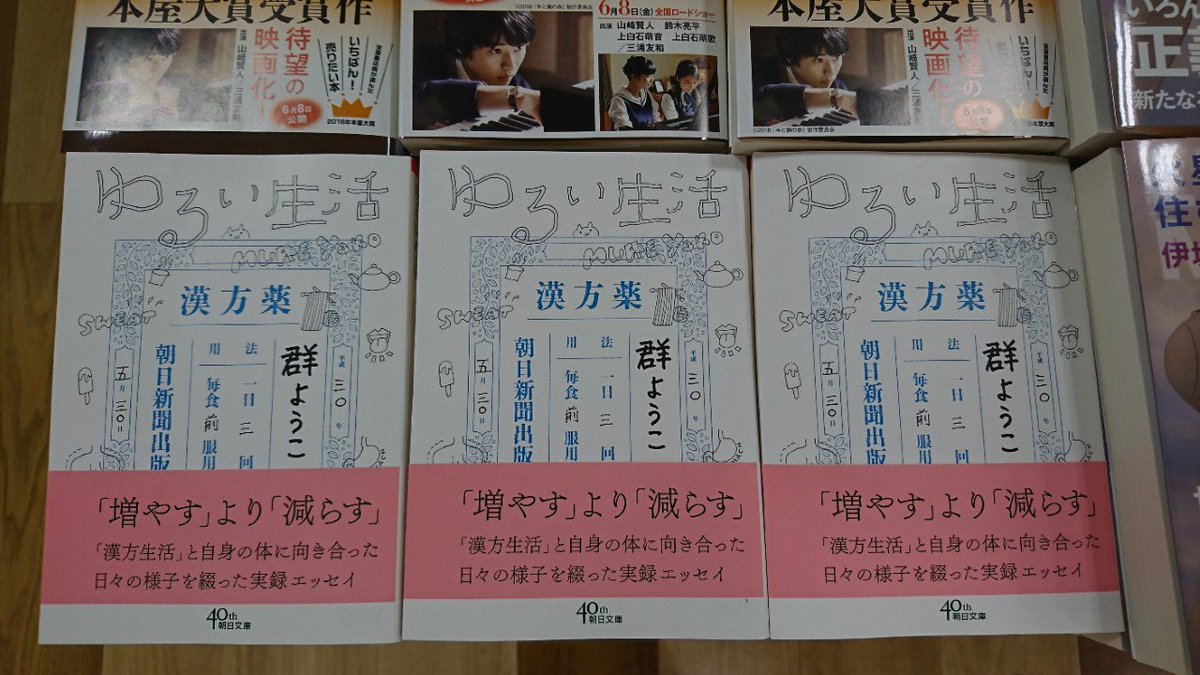 本屋大賞受賞作
待望の
映画化!
全国書店員が選んだ
いちばん!
売りたい本
出演 山﨑賢人/三浦友和
6月8日
公開
2016年本屋大賞
©2018「羊と鋼の森」製作委員会
6月8日(金)全国ロードショー
出演 山﨑賢人 鈴木亮平
上白石萌音 上白石萌歌
/三浦友和
本屋大賞受賞作
待望の
映画化!
全国書店員が選んだ
いちばん!
売りたい本
出演 山﨑賢人/三浦友和
6月8日
公開
2016年本屋大賞
©2018「羊と鋼の森」製作委員会
いろん
正義
新たな
ゆるい生活
MURE YOKO
漢方薬
SWEAT
群ようこ
平成三〇年
法 一日三回
用 毎食前服用
朝日新聞出版
五月三〇日
「増やす」より「減らす」
「漢方生活」と自身の体に向き合った
日々の様子を綴った実録エッセイ
40th
朝日文庫
ゆるい生活
MURE YOKO
漢方薬
SWEAT
群ようこ
平成三〇年
法 一日三回
用 毎食前服用
朝日新聞出版
五月三〇日
「増やす」より「減らす」
「漢方生活」と自身の体に向き合った
日々の様子を綴った実録エッセイ
40th
朝日文庫
ゆるい生活
MURE YOKO
漢方薬
SWEAT
群ようこ
平成三〇年
法 一日三回
用 毎食前服用
朝日新聞出版
五月三〇日
「増やす」より「減らす」
「漢方生活」と自身の体に向き合った
日々の様子を綴った実録エッセイ
40th
朝日文庫
火星
住
伊坂